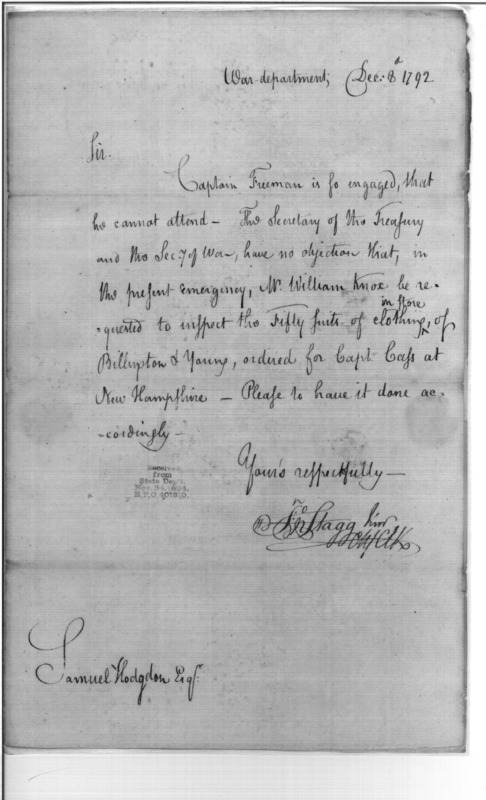 War-department, Dec: 8th 1792
Sir.
Captain Freeman is so engaged, that
he cannot attend — The Secretary of the Treasury
and the Secy of War, have no objection that, in
the present emergency, Mr. William Knox be re-
-quested to inspect the Fifty suits of clothing, in store of
Billington & Young, ordered for Capt Cass at
New Hampshire — Please to have it done ac-
-cordingly —
Received
from
State Dep't.
Nov. 24, 1894.
R.P.O.
Yours respectfully —
Jno Stagg Junr
Chf Clk
Samuel Hodgdon Esqr.